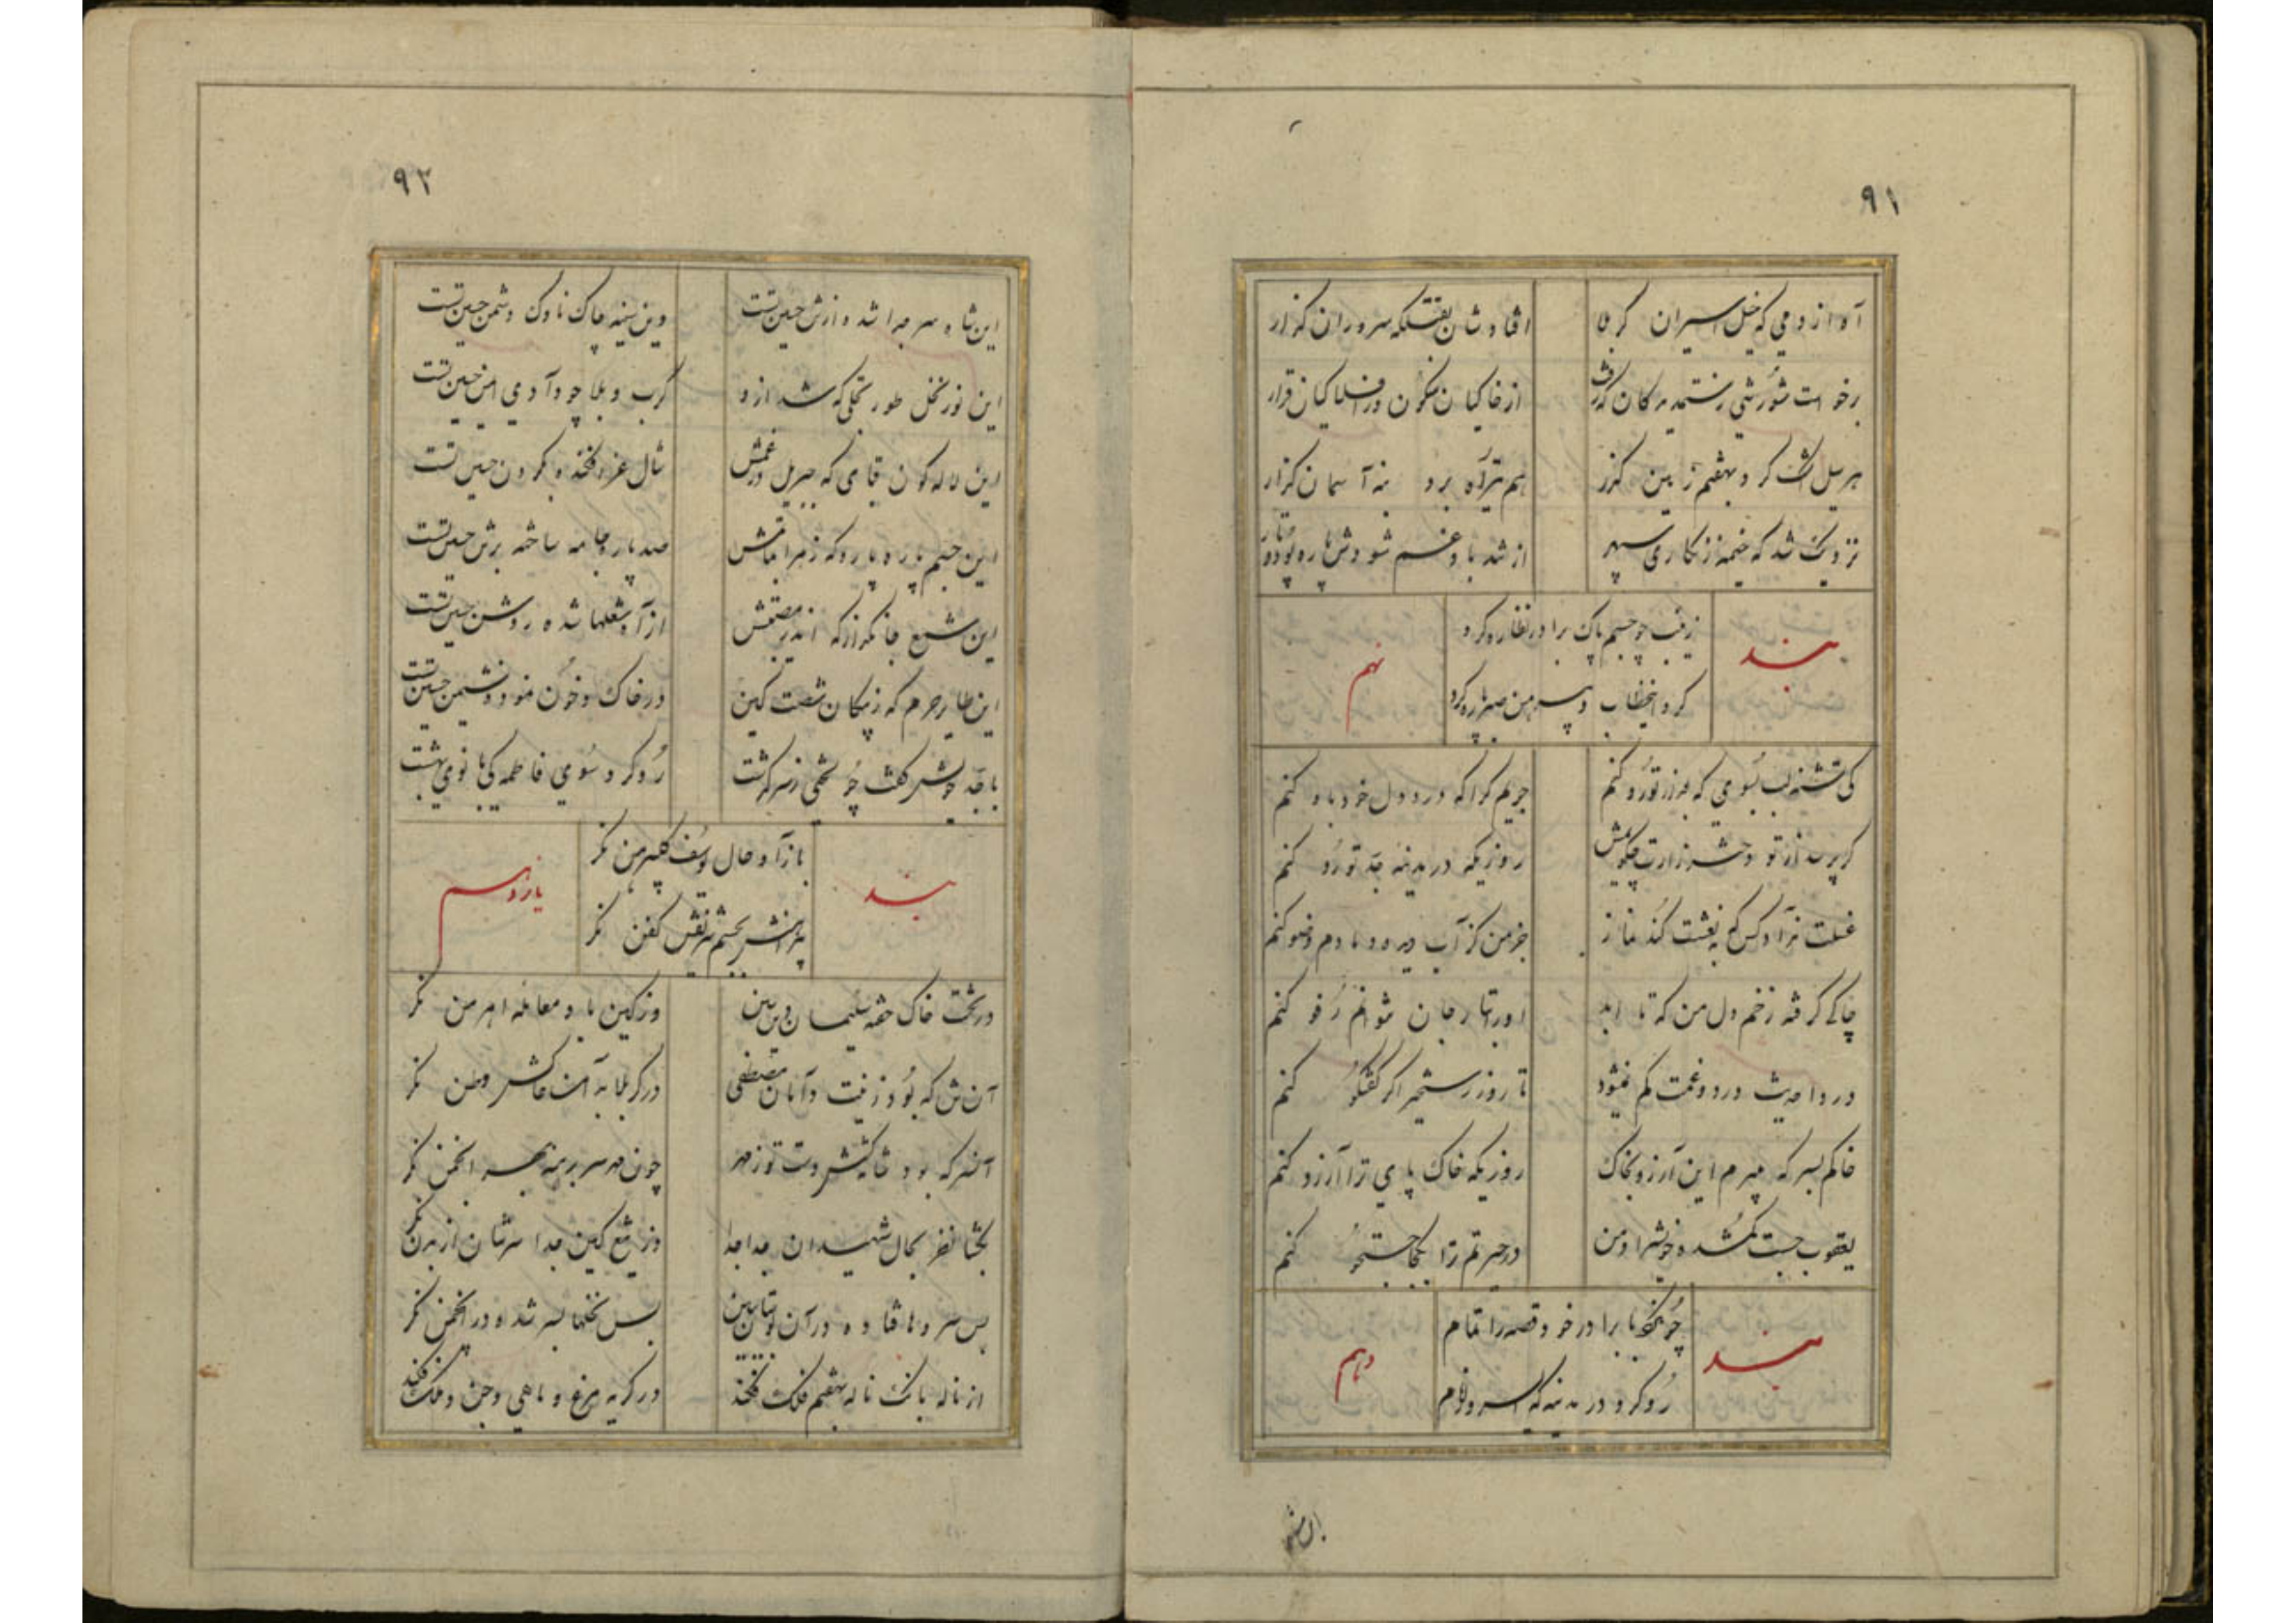 ۹۱
آه از دمی که خیل اسیران کربلا
افتادشان بقتلگه سروران گذار
برخواست شورشی
از خاکیان سکون و ز افلاکیان قرار
هر سیل اشک کرد بهفتم زمین گذر
هم تیر آه برد به نه آسمان گذار
نزدیک شد که خیمه زنگاری سپهر
از تند باد غم شودش پاره پود و تار
بند
زینب چو جسم پاک برادر نظاره کرد
کرد اینخطاب و پیرهن صبر پاره کرد
نهم
کی تشنه لب بسوی که جز از تو رو کنم
جویم کرا که درد دل خود باو کنم
گر پرسد از تو دخترزارت چگویمش
روزیکه در مدینه جد تو رو کنم
غسلت نداد کس که به نعشت کند نماز
جز من کز آب دیده دمادم وضو کنم
چاکی گرفته زخم دل من که تا ابد
او را بتار جان نتوانم رفو کنم
دردا حدیث درد و غمت کم نمیشود
تا روز رستخیز اگر گفتگو کنم
خاکم بسر که میبرم این آرزو بخاک
روزیکه خاک پای ترا آرزو کنم
یعقوب جست گمشده خویش را و من
در حیرتم ترا بکجا جستجو کنم
بند
چون با برادر خود قصه را تمام
رو کرد در مدینه که ای سرور انام
دهم
۹۲
این شاه سر جدا شده از تن حسین تست
وین سینه چاک ناوک دشمن حسین تست
این نور نخل طور تجلی که شد ازو
کرب و بلا چو وادی ایمن حسین تست
این لاله گون قبای که جبریل در غمش
شال عزا فکنده بگردن حسین تست
این جسم پاره پاره که زهرا بماتمش
صد پاره جامه ساخته بر تن حسین تست
این شمع جانگداز که اندر مصیبتش
از آه شعلها شده روشن حسین تست
این طایر حرم که ز پیکان شصت کین
در خاک و خون نمود نشیمن حسین تست
با جد خویش گفت چو لختی ز سرگذشت
رو کرد سوی فاطمه کی بانوی بهشت
بند
باز آ و حال یوسف گلپیرهن نگر
پیراهنش بجسم شریفش کفن نگر
یازدهم
در تخت خاک خفته سلیمان دین ببین
وز کین باد معامله اهرمن نگر
آن تن که بود زینت دامان مصطفی
در کربلا به آتش و خاکش وطن نگر
آنسر که بود شانه کشش دست تو ز مهر
چون مهر سر برهنه بهر انجمن نگر
بگشا نظر بحال شهیدان جدا جدا
وز تیغ کین جدا سرشان از بدن نگر
بس سروها فتاده در آن بوستان ببین
بس نخلها بسر شده در انجمن نگر
از ناله بانگ ناله بهفتم فلک فکند
در گریه مرغ و ماهی و جن و ملک فکند